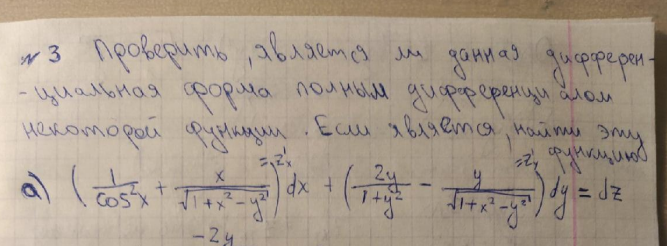 № 3 Проверить, является ли данная дифферен-
-циальная форма полным дифференциалом
некоторой функции. Если является, найти эту
функцию
а) (1/cos²x + x/√(1+x²-y²))dx + (2y/(1+y²) - y/√(1+x²-y²))dy = dz
=z'x =z'y
-2y